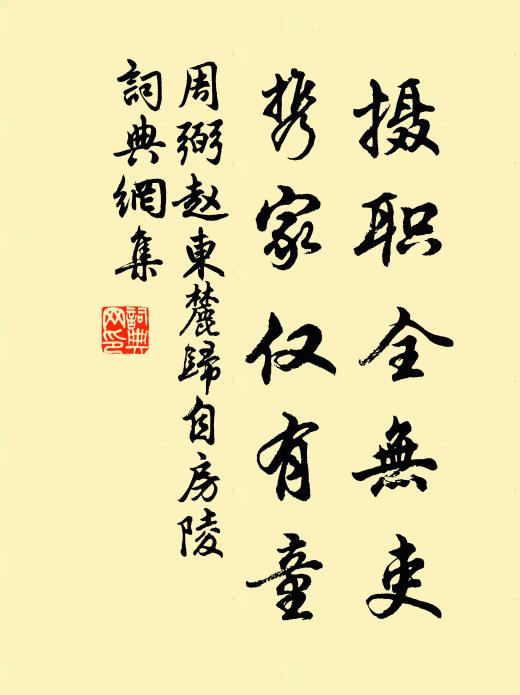 摄职全無吏
携家仅有童
周弼赵東麓歸自房陵
詞典網集
詞典
网印